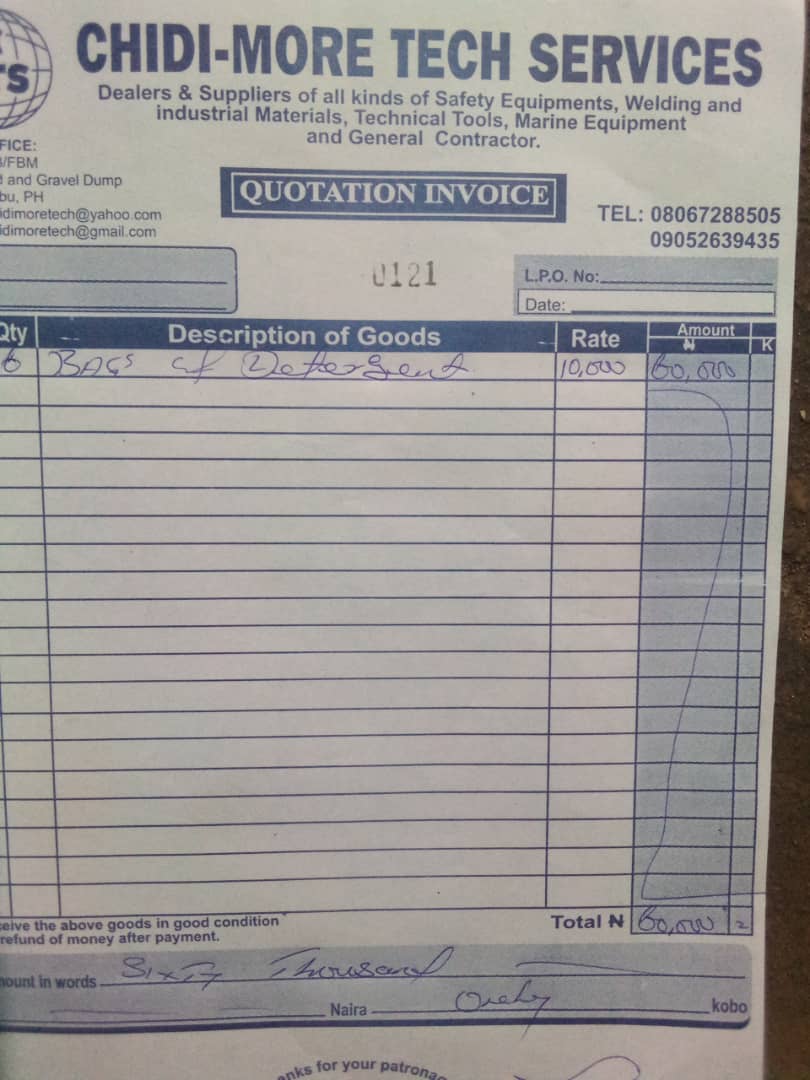 TS
CHIDI-MORE TECH SERVICES
Dealers & Suppliers of all kinds of Safety Equipments, Welding and
industrial Materials, Technical Tools, Marine Equipment
and General Contractor.
FICE:
/FBM
and Gravel Dump
bu, PH
idimoretech@yahoo.com
idimoretech@gmail.com
QUOTATION INVOICE
TEL: 08067288505
09052639435
0121
L.P.O. No:
Date:
Qty Description of Goods Rate Amount
₦ K
6 BAGS of Detergent 10,000 60,000
ceive the above goods in good condition
refund of money after payment.
Total ₦ 60,000
mount in words Sixty Thousand
Naira Only kobo
anks for your patrona